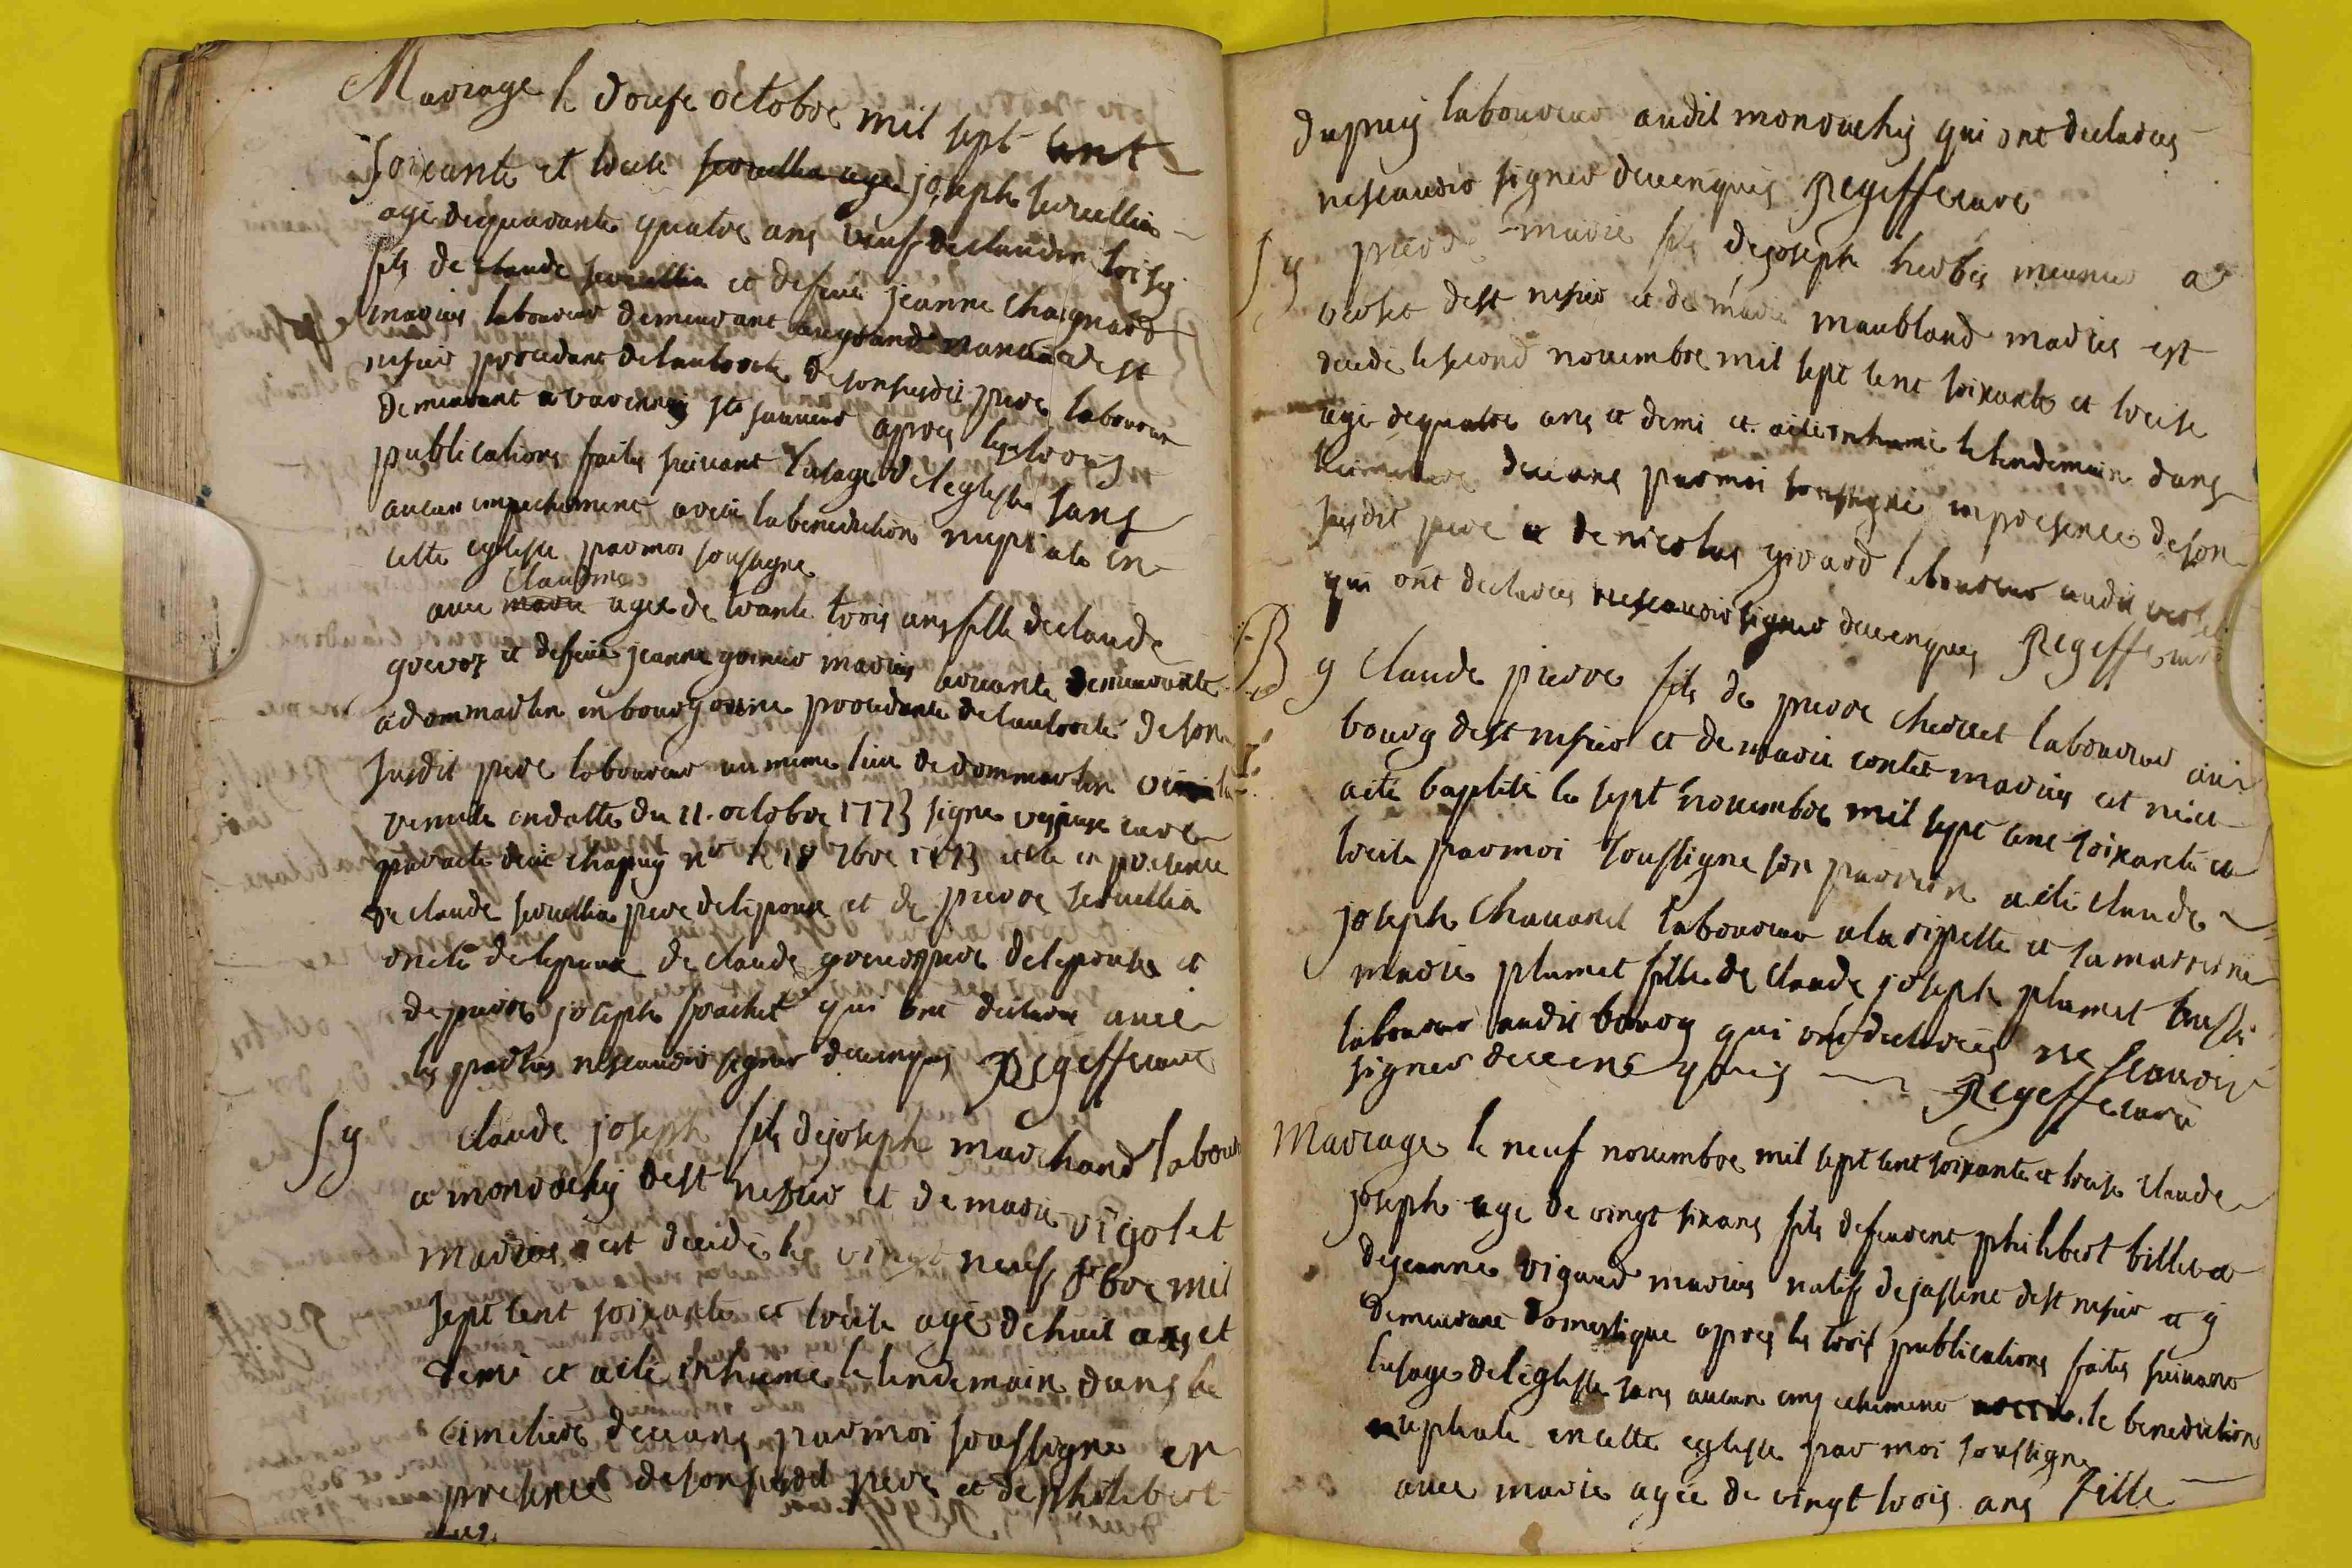 Mariage le douse octobre mil sept cent
soixante et treise joseph servillia
agé de quarante quatre ans veuf de claudine loisy
fils de claude servillia et defeue jeanne chaignard
mariés laboureur demeurant au grand dest
nisier procedant de lautorite de son susdit pere laboureur
demeurant a varennes st sauveur apres les trois
publications faites suivant lusage de leglisse sans
aucun empechement areçu la benediction nuptiale en
cette eglisse par moi soussigne
claudine
avec marie agee de trante trois ans fille de claude
grevoz et defeue jeanne mariés demeurante
a dommartin en bourgogne procedante de lautorité de son
susdit pere laboureur au meme lieu de dommartin
remise en datte du 11. octobre 1773 signe curé
par acte chapuy n.re le 18 7bre 1773 et le en presence
de claude servillia pere de lepoux et de pierre servillia
oncle de lepoux de claude grevoz pere de lepouse et
de pierre joseph prachet qui ont declaré avec
les parties ne scavoir signer de ce enquis Regeffe curé
s g claude joseph fils de joseph marchand labour
a monrachy dest nisier et de marie vigolet
mariés est decidé le vingt neuf 8bre mil
sept cent soixante et treise agé de huit ans et
demi et aété inhumé le lendemain dans le
cimetiere de ceans par moi soussigne en
presence de son susdit pere et de philibert
dupuy laboureur audit monrachy qui ont declarés
ne scauoir signer de ce enquis Regeffe curé
s g pierre marie fils de joseph herbes meunier a
verset dest nisier et de marie maubland mariés est
decidé le second novembre mil sept cent soixante et treise
agé de quatre ans et demi et aété inhumé le lendemain dans
le cimetiere de ceans par moi soussigné en presence de son
susdit pere et de nicolas girard laboureur audit verset
qui ont declarés ne scauoir signer de ce enquis Regeffe curé
B g claude pierre fils de pierre chervet laboureur au
bourg dest nisier et de marie contet mariés est né et
aété baptisé le sept novembre mil sept cent soixante et
treise par moi soussigne son parrein aété claude
joseph chavanet laboureur a la ripette et sa marreine
marie plumet fille de claude joseph plumet aussi
laboureur audit bourg qui ont declarés ne scauoir
signer de ce enquis Regeffe curé
Mariage le neuf novembre mil sept cent soixante et treise claude
joseph agé de vingt six ans fils de feu philibert billet et
de jeanne vigaud mariés natif de dest nisier et y
demeurant domestique apres les trois publications faites suivant
lusage de leglisse sans aucun empechement la benediction
nuptiale en cette eglisse par moi soussigne
avec marie agée de vingt trois ans fille